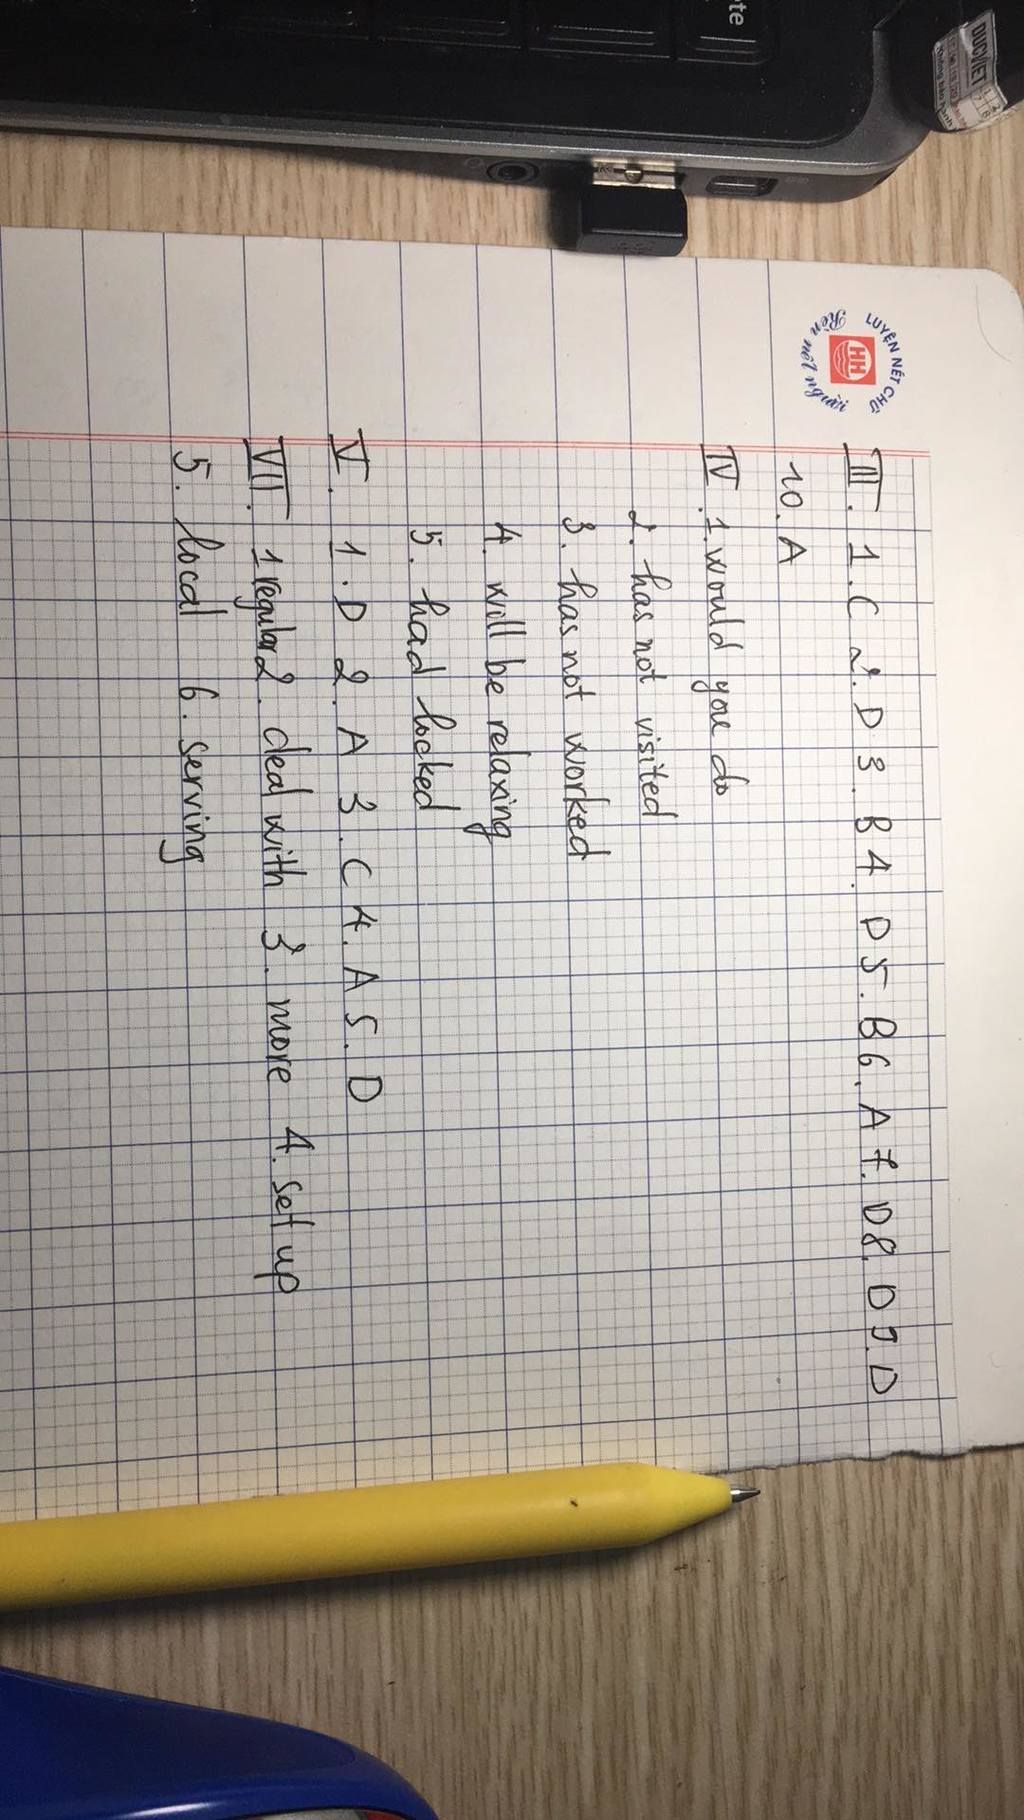 LUYỆN NÉT CHỮ
HH
Rèn nết người
III. 1. C 2. D 3. B 4. D 5. B 6. A 7. D 8. D 9. D
10. A
IV. 1. would you do
2. has not visited
3. has not worked
4. will be relaxing
5. had locked
V. 1. D 2. A 3. C 4. A 5. D
VII. 1 regular 2. deal with 3. more 4. set up
5. local 6. serving
ĐỨC VIỆT
te